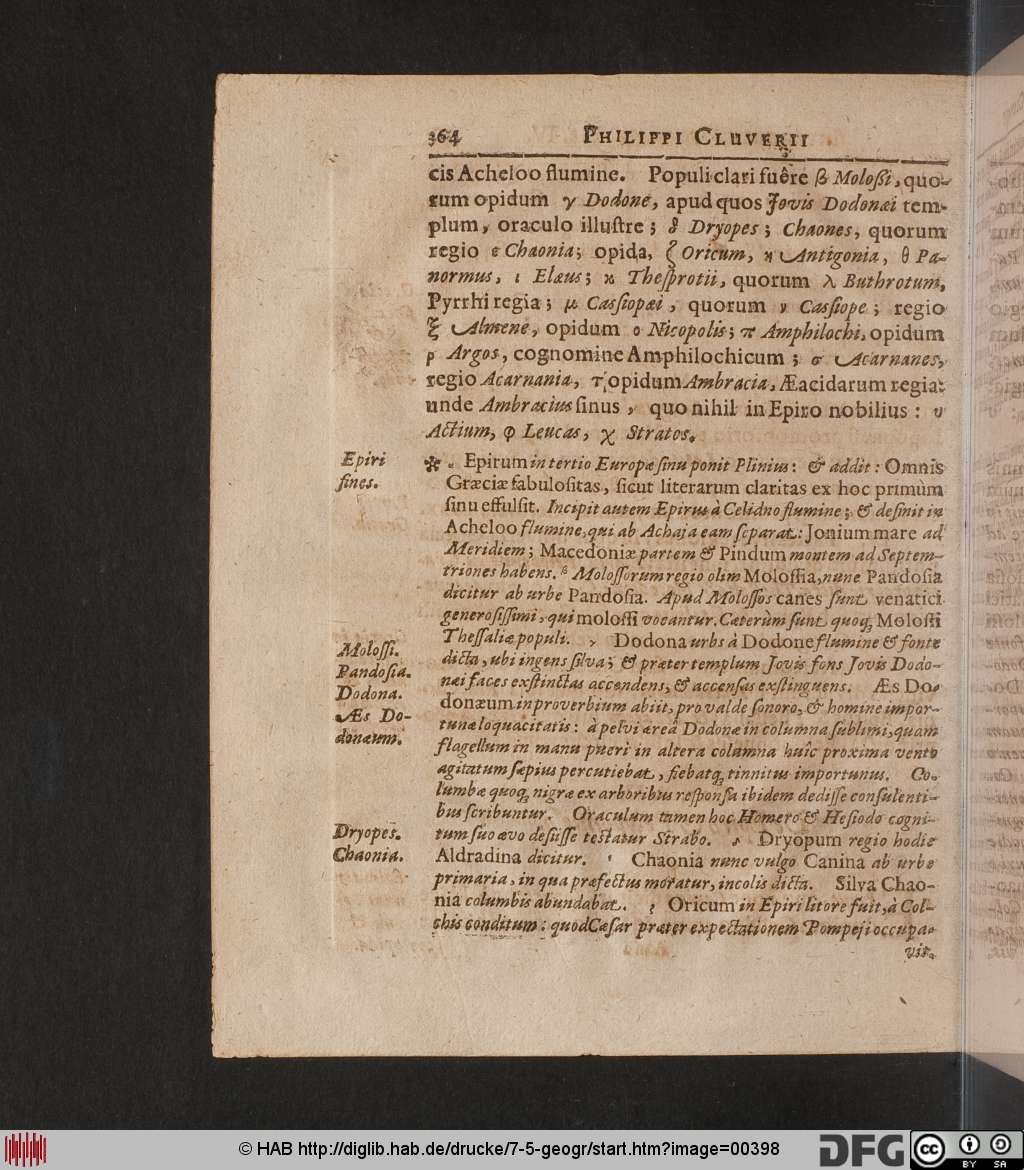 364 PHILIPPI CLUVERII
cis Acheloo flumine. Populi clari fuêre β Moloſſi, quo-
rum opidum γ Dodone, apud quos Jovis Dodonæi tem-
plum, oraculo illuſtre; δ Dryopes; Chaones, quorum
regio ε Chaonia; opida, ζ Oricum, η Antigonia, θ Pa-
normus, ι Elæus; ϰ Theſprotii, quorum λ Buthrotum,
Pyrrhi regia; μ Caſſiopæi, quorum ν Caſſiope; regio
ξ Almene, opidum ο Nicopolis; π Amphilochi, opidum
ρ Argos, cognomine Amphilochicum; σ Acarnanes,
regio Acarnania, τ opidum Ambracia, Æacidarum regia:
unde Ambracius ſinus, quo nihil in Epiro nobilius: υ
Actium, φ Leucas, χ Stratos.
Epiri
fines.
* Epirum in tertio Europæ ſinu ponit Plinius: & addit: Omnis
Græciæ fabuloſitas, ſicut literarum claritas ex hoc primùm
ſinu effulſit. Incipit autem Epirus à Celidno flumine; & deſinit in
Acheloo flumine, qui ab Achaja eam ſeparat: Jonium mare ad
Meridiem; Macedoniæ partem & Pindum montem ad Septem-
triones habens. β Moloſſorum regio olim Moloſſia, nunc Pandoſia
dicitur ab urbe Pandoſia. Apud Moloſſos canes ſunt venatici
generoſiſſimi, qui moloſſi vocantur. Cæterùm ſunt quoq; Moloſſi
Theſſaliæ populi. γ Dodona urbs à Dodone flumine & fonte
dicta, ubi ingens ſilva; & præter templum Jovis fons Jovis Dodo-
næi faces exſtinctas accendens, & accenſas exſtinguens. Æs Do-
donæum in proverbium abiit, pro valde ſonoro, & homine impor-
tunæ loquacitatis: à pelvi æreâ Dodonæ in columna ſublimi, quam
flagellum in manu pueri in altera columna huîc proxima vento
agitatum ſæpius percutiebat, fiebatq; tinnitus importunus. Co-
lumbæ quoq; nigræ ex arboribus reſponſa ibidem dediſſe conſulenti-
bus ſcribuntur. Oraculum tamen hoc Homero & Heſiodo cogni-
tum ſuo ævo deſiiſſe teſtatur Strabo. δ Dryopum regio hodie
Aldradina dicitur. ε Chaonia nunc vulgo Canina ab urbe
primaria, in qua præfectus moratur, incolis dicta. Silva Chao-
nia columbis abundabat. ζ Oricum in Epiri litore fuit, à Col-
chis conditum: quod Cæſar præter expectationem Pompeji occupa-
vit.
Moloſſi.
Pandoſia.
Dodona.
Æs Do-
donæum.
Dryopes.
Chaonia.
© HAB http://diglib.hab.de/drucke/7-5-geogr/start.htm?image=00398
DFG
cc
BY SA